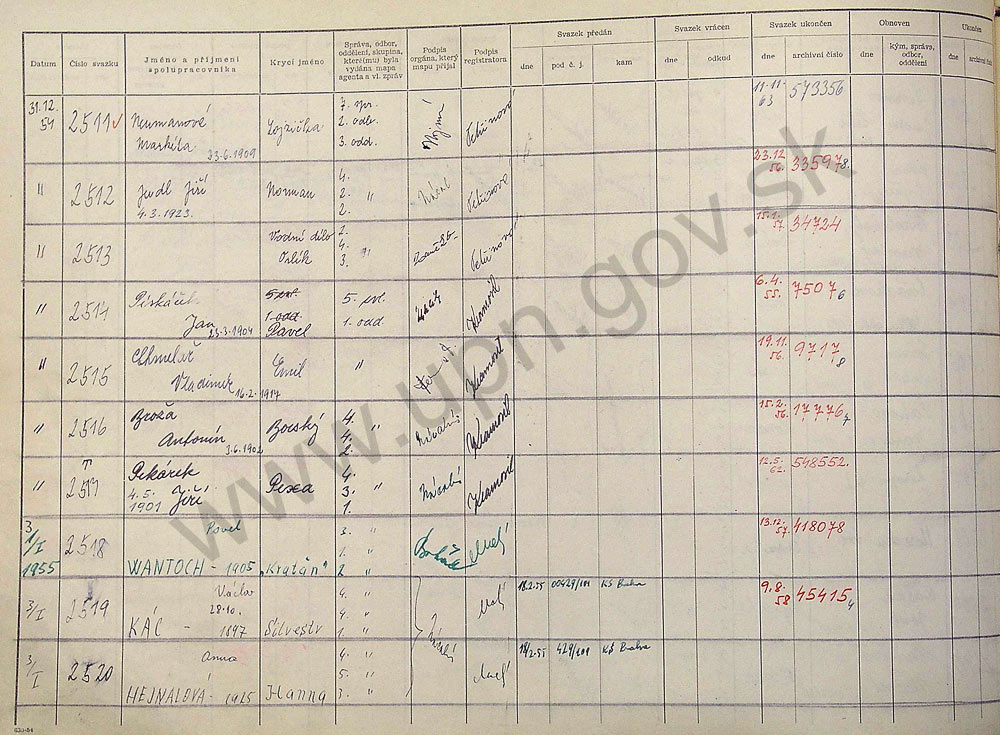 Datum
Číslo svazku
Jméno a příjmení
spolupracovníka
Krycí jméno
Správa, odbor,
oddělení, skupina,
které(mu) byla
vydána mapa
agenta a vl. zpráv
Podpis
orgána, který
mapu přijal
Podpis
registratora
Svazek předán
dne
pod č. j.
kam
Svazek vrácen
dne
odkud
Svazek ukončen
dne
archivní číslo
Obnoven
dne
kým, správa,
odbor,
oddělení
Ukončen
archivní číslo
31.12.
54
2511
Neumanové
Markéta
23.6.1909
Lojzička
7. spr.
2. odb.
3. odd.
11.11
63
573356
"
2512
Judl Jiří
4.3.1923.
Norman
4.
2. "
2.
23.12.
56.
33597
8.
"
2513
Vodní dílo
Orlík
2.
4. "
3.
15.1.
57.
34724
"
2514
Piskáček
Jan
23.3.1904
1. odd.
Pavel
5. svl.
1. odd.
6.4.
55.
7507
6
"
2515
Chmelař
Vladimír
16.2.1917
Emil
"
19.11.
56.
9717
8
"
2516
Broža
Antonín
3.6.1902
Borský
4.
4. "
2.
15.2.
56.
17776
"
2517
Pekárek
4.5.
1901 Jiří
Pexa
4.
3. "
1.
12.5.
62.
548552.
3
1/I
1955
2518
Pavel
WANTOCH - 1905
"Kražan"
3. "
1. "
2 "
Malý
13.12.
57.
418078
3/I
2519
Václav
28.10.
KÁC - 1897
Silvestr
4. "
4. "
1. "
Malý
18.2.55
00429/101
KS Praha
9.8.
58
45415
4
3/I
2520
Anna
HEJNALOVÁ - 1925
Hanna
4. "
5. "
3. "
Malý
18/2.55
429/101
KS Praha
www.upn.gov.sk